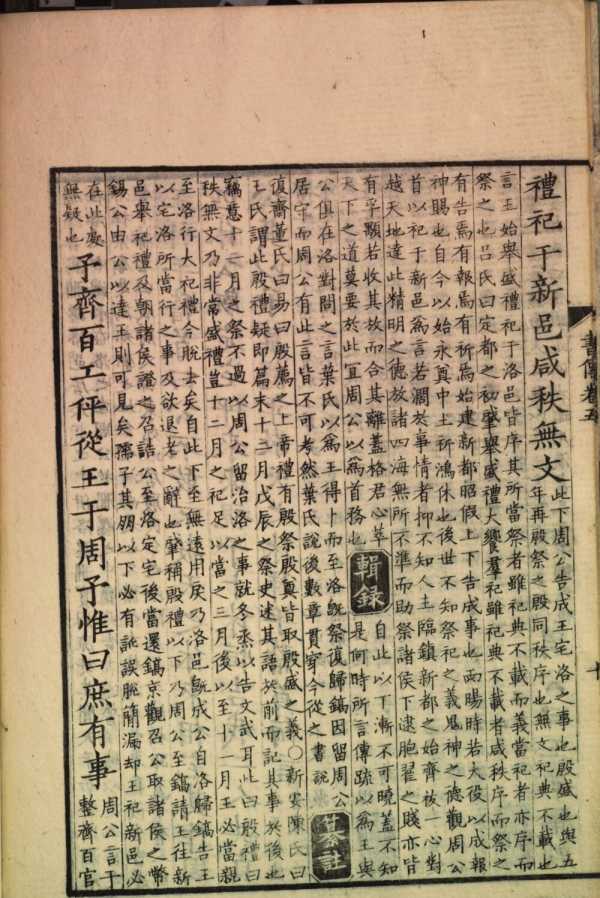 書傳卷五
十
禮祀于新邑咸秩無文
此下周公告成王宅洛之事也殷盛也與五
年再殷祭之殷同秩序也無文祀典不載也
言王始舉盛禮祀于洛邑皆序其所當祭者雖祀典不載而義當祀者亦序而
祭之也呂氏曰定都之初肇舉盛禮大饗羣祀雖祀典不載者咸秩序而祭之
有告焉有報焉有祈焉始建新都昭假上下告成事也雨暘時若大役以成報
神賜也自今以始永奠中土祈鴻休也後世不知祭祀之義鬼神之德觀周公
首以祀于新邑爲言若濶於事情者抑不知人主臨鎮新都之始齊祓一心對
越天地達此精明之德放諸四海無所不準而助祭諸侯下逮胞翟之賤亦皆
有孚顒若收其放而合其離蓋格君心萃
天下之道莫要於此宜周公以爲首務也
輯錄
自此以下漸不可曉蓋不知
是何時所言傳疏以爲王與
公俱在洛對問之言葉氏以爲王得卜而至洛旣祭復歸鎬因留周公
居守而周公有此言皆不可考然葉氏說後數章貫穿今從之書說
纂註
復齋董氏曰易曰殷薦之上帝禮有殷祭殷奠皆取殷盛之義○新安陳氏曰
王氏謂此殷禮疑即篇末十二月戊辰之祭史述其語於前而記其事於後也
竊意十二月之祭不過以周公留治洛之事就冬烝以告文武耳此曰殷禮曰
秩無文乃非常盛禮豈十二月之祀足以當之三月後以至十一月王必當親
至洛行大祀禮今脫去矣自此下至無遠用戾乃洛邑旣成公自洛歸鎬告王
以宅洛所當行之事及欲退老之辭也肇稱殷禮以下乃周公至鎬請王往新
邑舉祀禮及朝諸侯證之召誥公至洛定宅後當還鎬京觀召公取諸侯之幣
錫公由公以達王則可見矣孺子其朋以下必有訛誤脫簡漏却王祀新邑必
在此處
無疑也
子齊百工伻從王于周子惟曰庶有事
周公言于
整齊百官